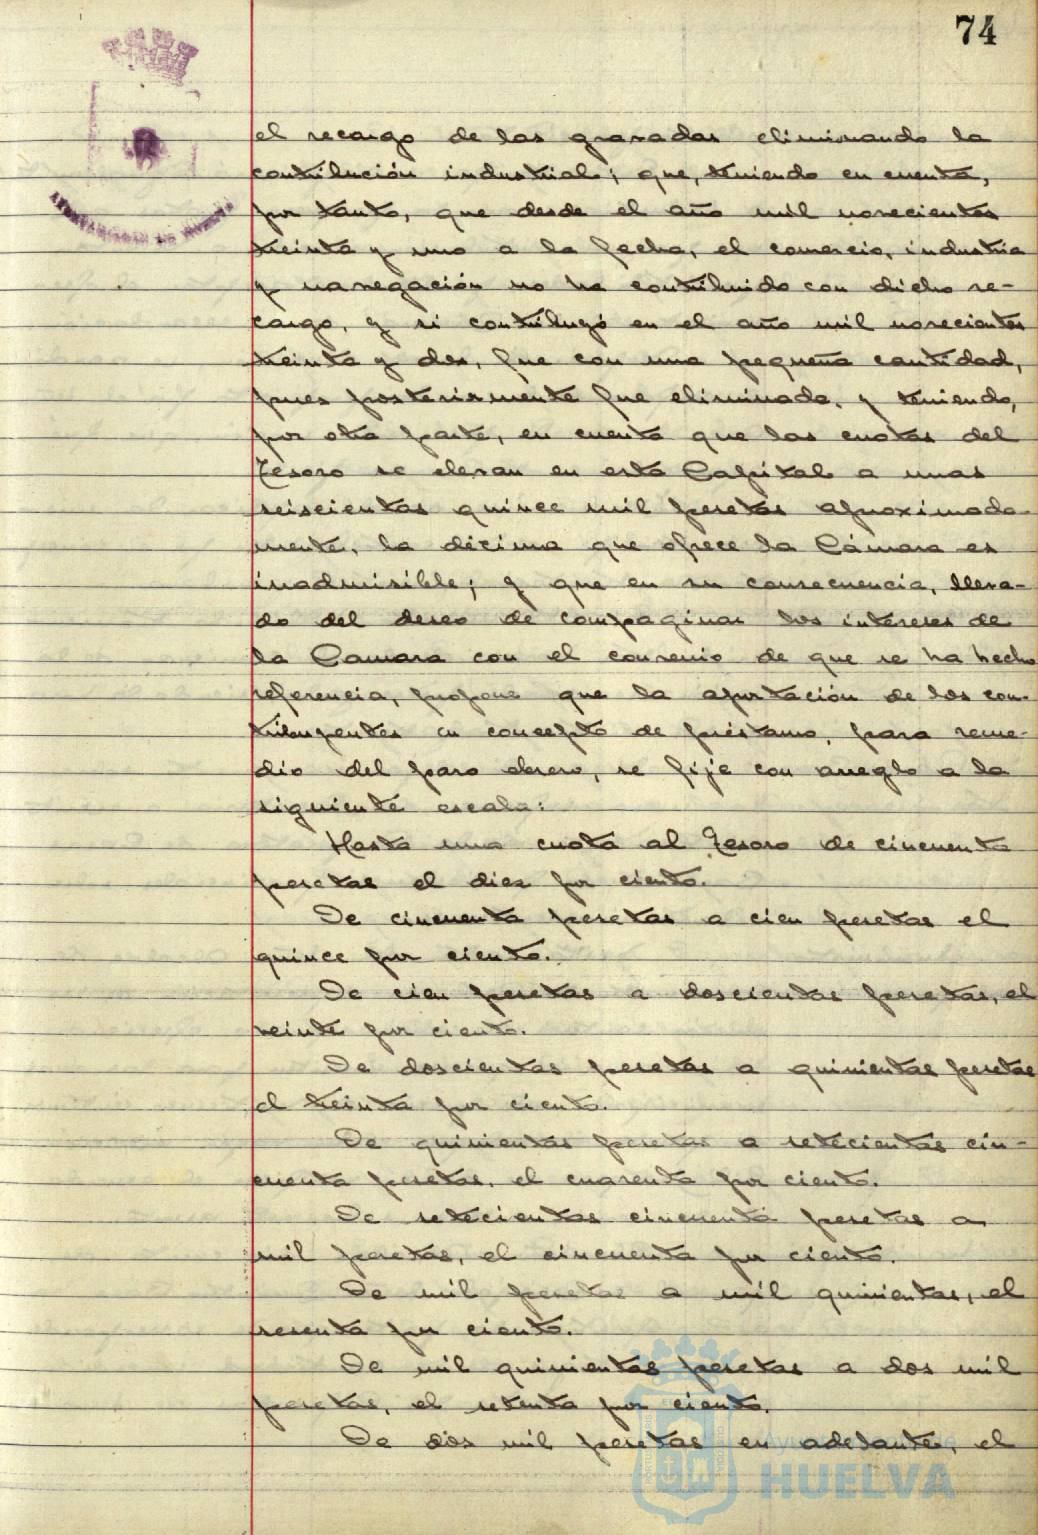 74
AYUNTAMIENTO DE HUELVA
el recargo de las gravadas eliminando la
contribución industrial; que, teniendo en cuenta,
por tanto, que desde el año mil novecientos
treinta y uno a la fecha, el comercio, industria
y navegación no ha contribuido con dicho re-
cargo, y si contribuyó en el año mil novecientos
treinta y dos, fue con una pequeña cantidad,
pues posteriormente fue eliminada, y teniendo,
por otra parte, en cuenta que las cuotas del
Tesoro se elevan en esta Capital a unas
seiscientas quince mil pesetas aproximada-
mente, la décima que ofrece la Cámara es
inadmisible; y que en su consecuencia, lleva-
do del deseo de compaginar los intereses de
la Camara con el convenio de que se ha hecho
referencia, propone que la aportación de los con-
tribuyentes en concepto de préstamo, para reme-
dio del paro obrero, se fije con arreglo a la
siguiente escala:
Hasta una cuota al Tesoro de cincuenta
pesetas el diez por ciento.
De cincuenta pesetas a cien pesetas el
quince por ciento.
De cien pesetas a doscientas pesetas, el
veinte por ciento.
De doscientas pesetas a quinientas pesetas
el treinta por ciento.
De quinientas pesetas a setecientas cin-
cuenta pesetas, el cuarenta por ciento.
De setecientas cincuenta pesetas a
mil pesetas, el cincuenta por ciento.
De mil pesetas a mil quinientas, el
sesenta por ciento.
De mil quinientas pesetas a dos mil
pesetas, el setenta por ciento.
De dos mil pesetas en adelante, el
Ayuntamiento de
HUELVA